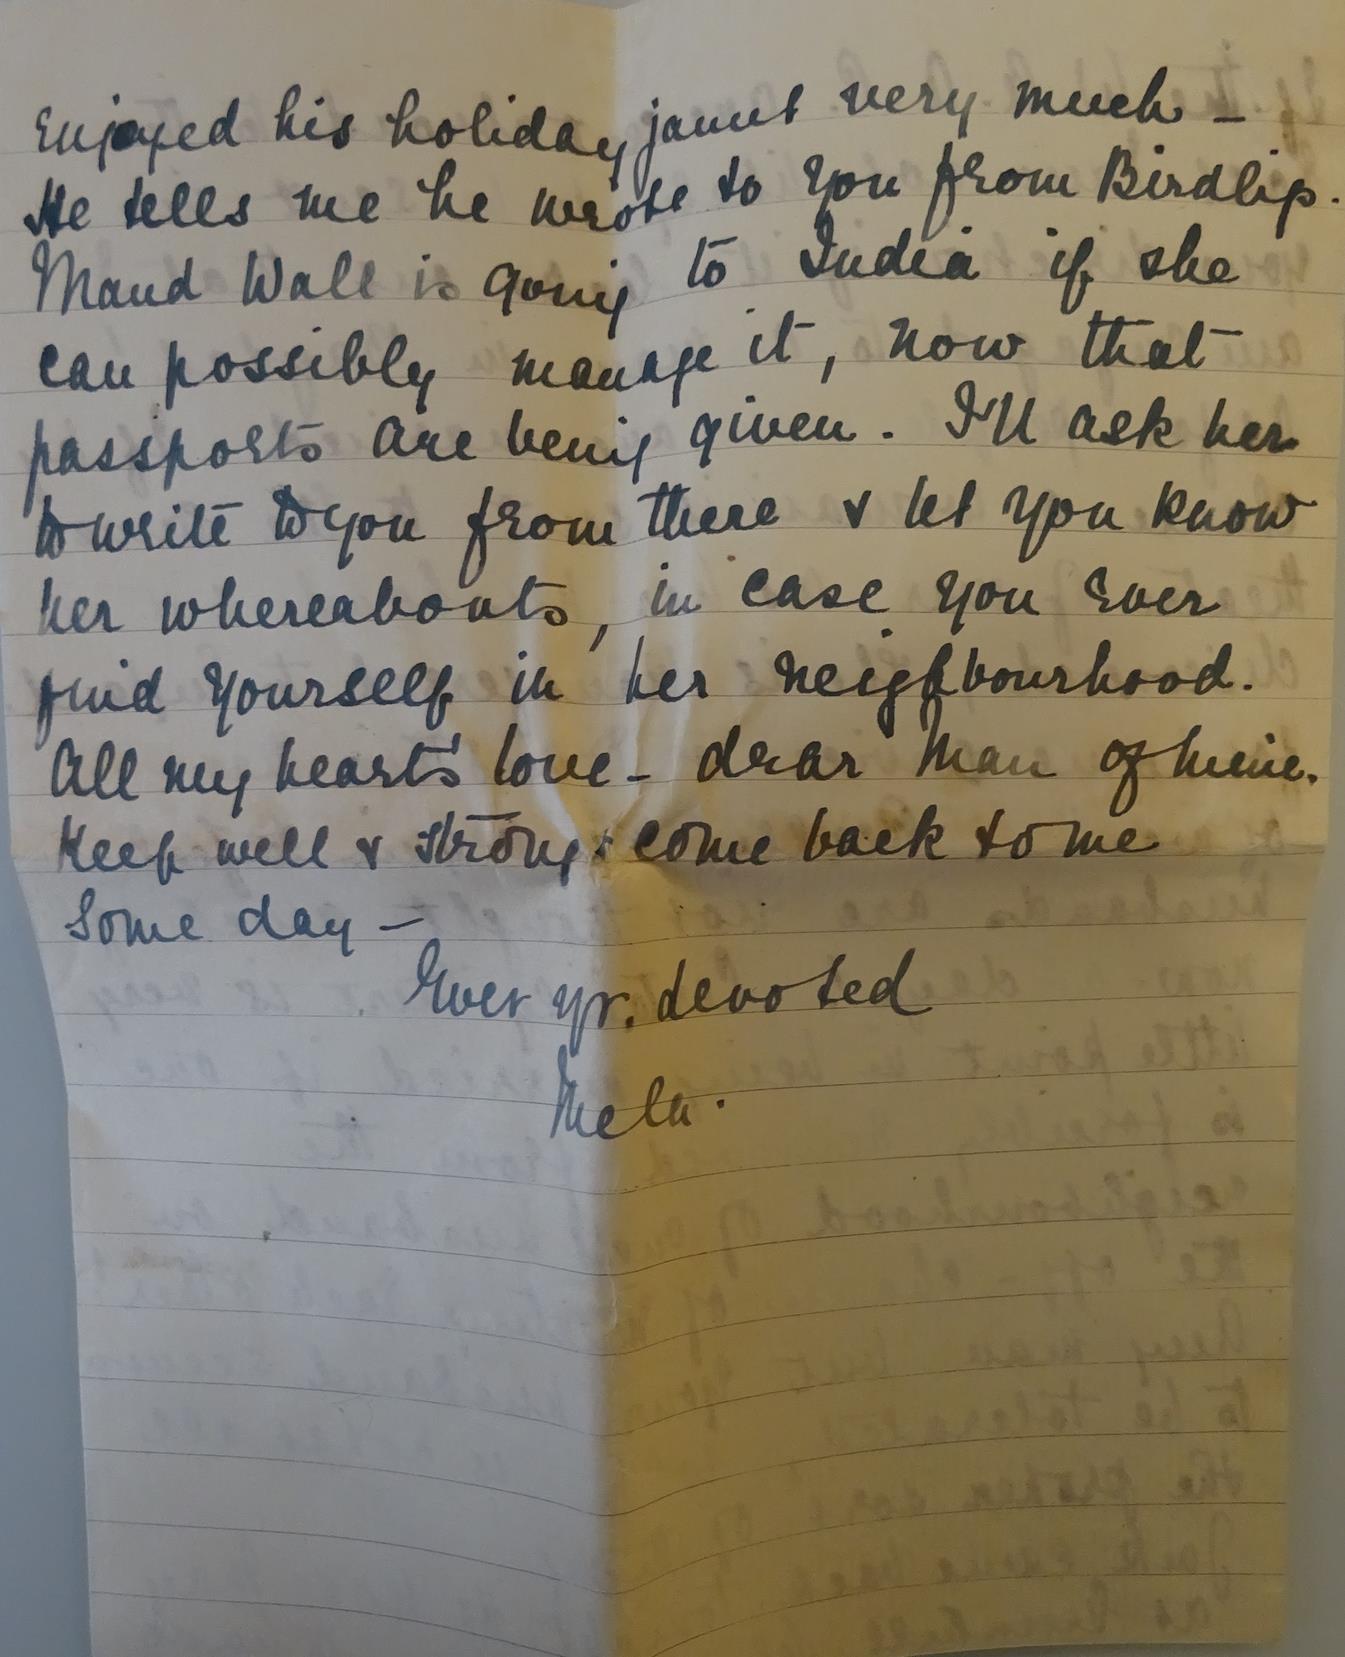 Enjoyed his holiday jaunt very much –
He tells me he wrote to you from Birdlip.
Maud Wall is going to India if she
can possibly manage it, now that
passports are being given. I'll ask her
to write to you from there & let you know
her whereabouts, in case you ever
find yourself in her neighbourhood.
All my heart's love – dear Man of mine.
Keep well & strong & come back to me
some day –
Ever yr. devoted